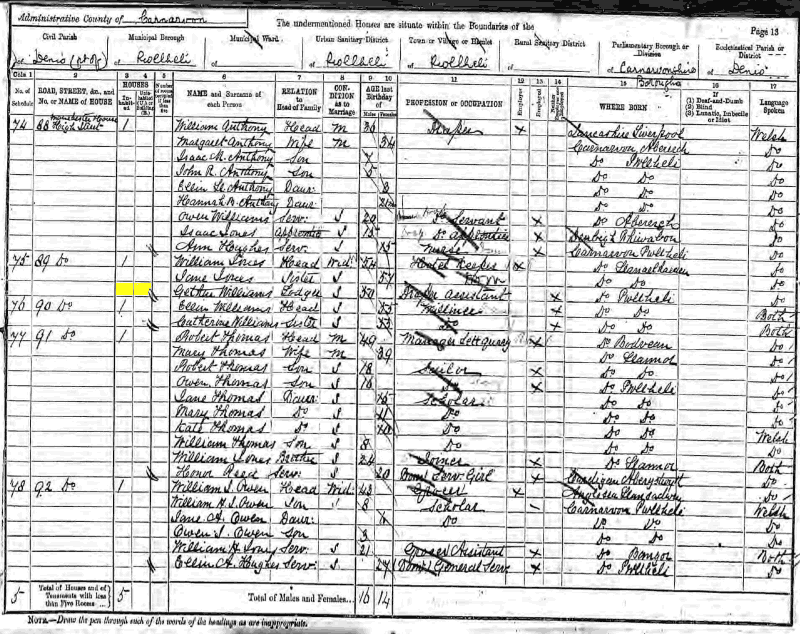 Administrative County of Carnarvon
The undermentioned Houses are situate within the Boundaries of the
Page 13
Civil Parish
Municipal Borough
Municipal Ward
Urban Sanitary District
Town or Village or Hamlet
Rural Sanitary District
Parliamentary Borough or Division
Ecclesiastical Parish or District
of Denio (pt of)
of Pwllheli
of
of Pwllheli
of Pwllheli
of
of Carnarvonshire Boroughs
of Denio
Cols 1 2 3 4 5 6 7 8 9 10 11 12 13 14 15 16 17
No. of Schedule
ROAD, STREET, &c., and No. or NAME of HOUSE
HOUSES
NAME and Surname of each Person
RELATION to Head of Family
CONDITION as to Marriage
AGE last Birthday of
PROFESSION or OCCUPATION
WHERE BORN
If (1) Deaf-and-Dumb (2) Blind (3) Lunatic, Imbecile or Idiot
Language Spoken
74 88 High Street Manchester House 1 William Anthony Head M 36 Draper X Lancashire Liverpool Welsh
Margaret Anthony Wife M 34 Carnarvon Aberech Do
Isaac M. Anthony Son Do Pwllheli Do
John R. Anthony Son 5 Do Do Do
Ellin Anthony Daur 3 Do Do Do
Hannah Anthony Daur Do Do Do
Owen Williams Serv: S 20 Servant X Do Aberech Do
Isaac Jones Apprentice S 15 Do apprentice X Denbigh Do
Ann Hughes Serv: S 15 Nurse X Carnarvon Pwllheli Do
75 89 Do 1 William Jones Head Wid: 54 Hotel Keeper X Do Do
Jane Jones Sister S 57 Do Do Do
Gethin Williams Lodger S 30 Draper Assistant Do Pwllheli Do
76 90 Do 1 Ellin Williams Head S 35 Milliner X Do Do Both
Catherine Williams Sister S 33 Do X Do Do Both
77 91 Do 1 Robert Thomas Head M 49 Manager Sett quarry X Do Bodvean Do
Mary Thomas Wife M 39 Do Llannor Do
Robert Thomas Son S 18 Tailor X Do Do Do
Owen Thomas Son S 16 Do X Do Pwllheli Do
Jane Thomas Daur: S 15 Scholar Do Do Do
Mary Thomas Do S 11 Do Do Do Do
Kate Thomas Do S 10 Do Do Do Do
William Thomas Son S 8 Do Do Do Welsh
William Jones Brother S 24 Joiner X Do Llannor Both
Honor Reed Serv: S 20 Dom: Serv: Girl X Cardigan Aberystwith Do
78 92 Do 1 William J. Owen Head Wid: 43 Grocer X Anglesea Llansadwrn Do
William H. Owen Son S 8 Scholar Carnarvon Pwllheli Welsh
Jane A. Owen Daur: Do Do Do Do
Owen J. Owen Son 3 Do Do Do
William H. Jones Serv: S 21 Grocer Assistant X Do Bangor Both
Ellin A. Hughes Serv: S 27 (Dom) General Serv: X Do Pwllheli Do
5 Total of Houses and of Tenements with less than Five Rooms 5
Total of Males and Females... 16 14
NOTE.—Draw the pen through such of the words of the headings as are inappropriate.